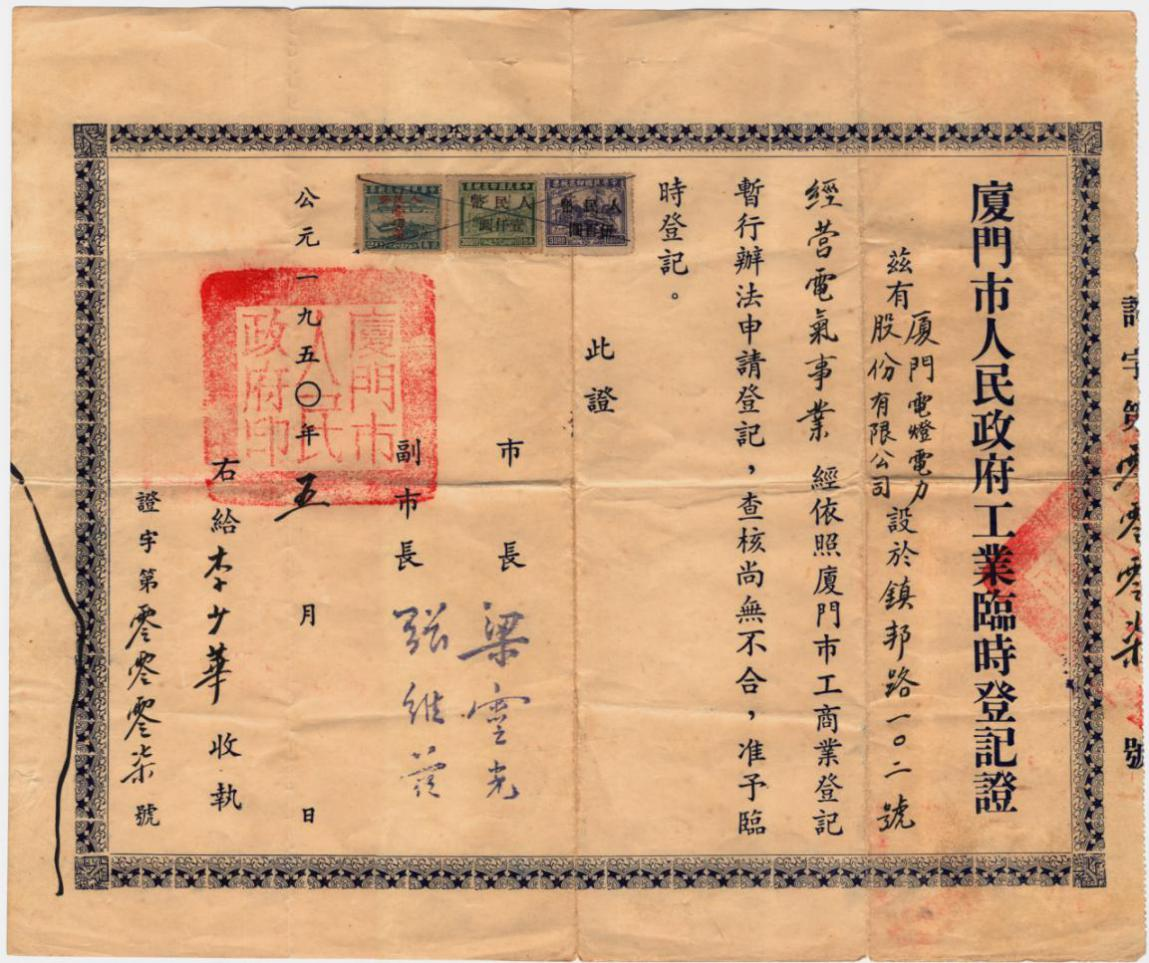 證字第零零零柒號
廈門市人民政府工業臨時登記證
茲有厦門電燈電力股份有限公司設於鎮邦路一〇二號
經营電氣事業 經依照廈門市工商業登記
暫行辦法申請登記，查核尚無不合，准予臨
時登記。
此證
市長 梁灵光
副市長 張維茲
右給李少華收執
公元一九五〇年五月 日
證字第零零零柒號
廈門市
人民
政府印
人民幣
伍百圓
人民幣
壹仟圓
人民幣